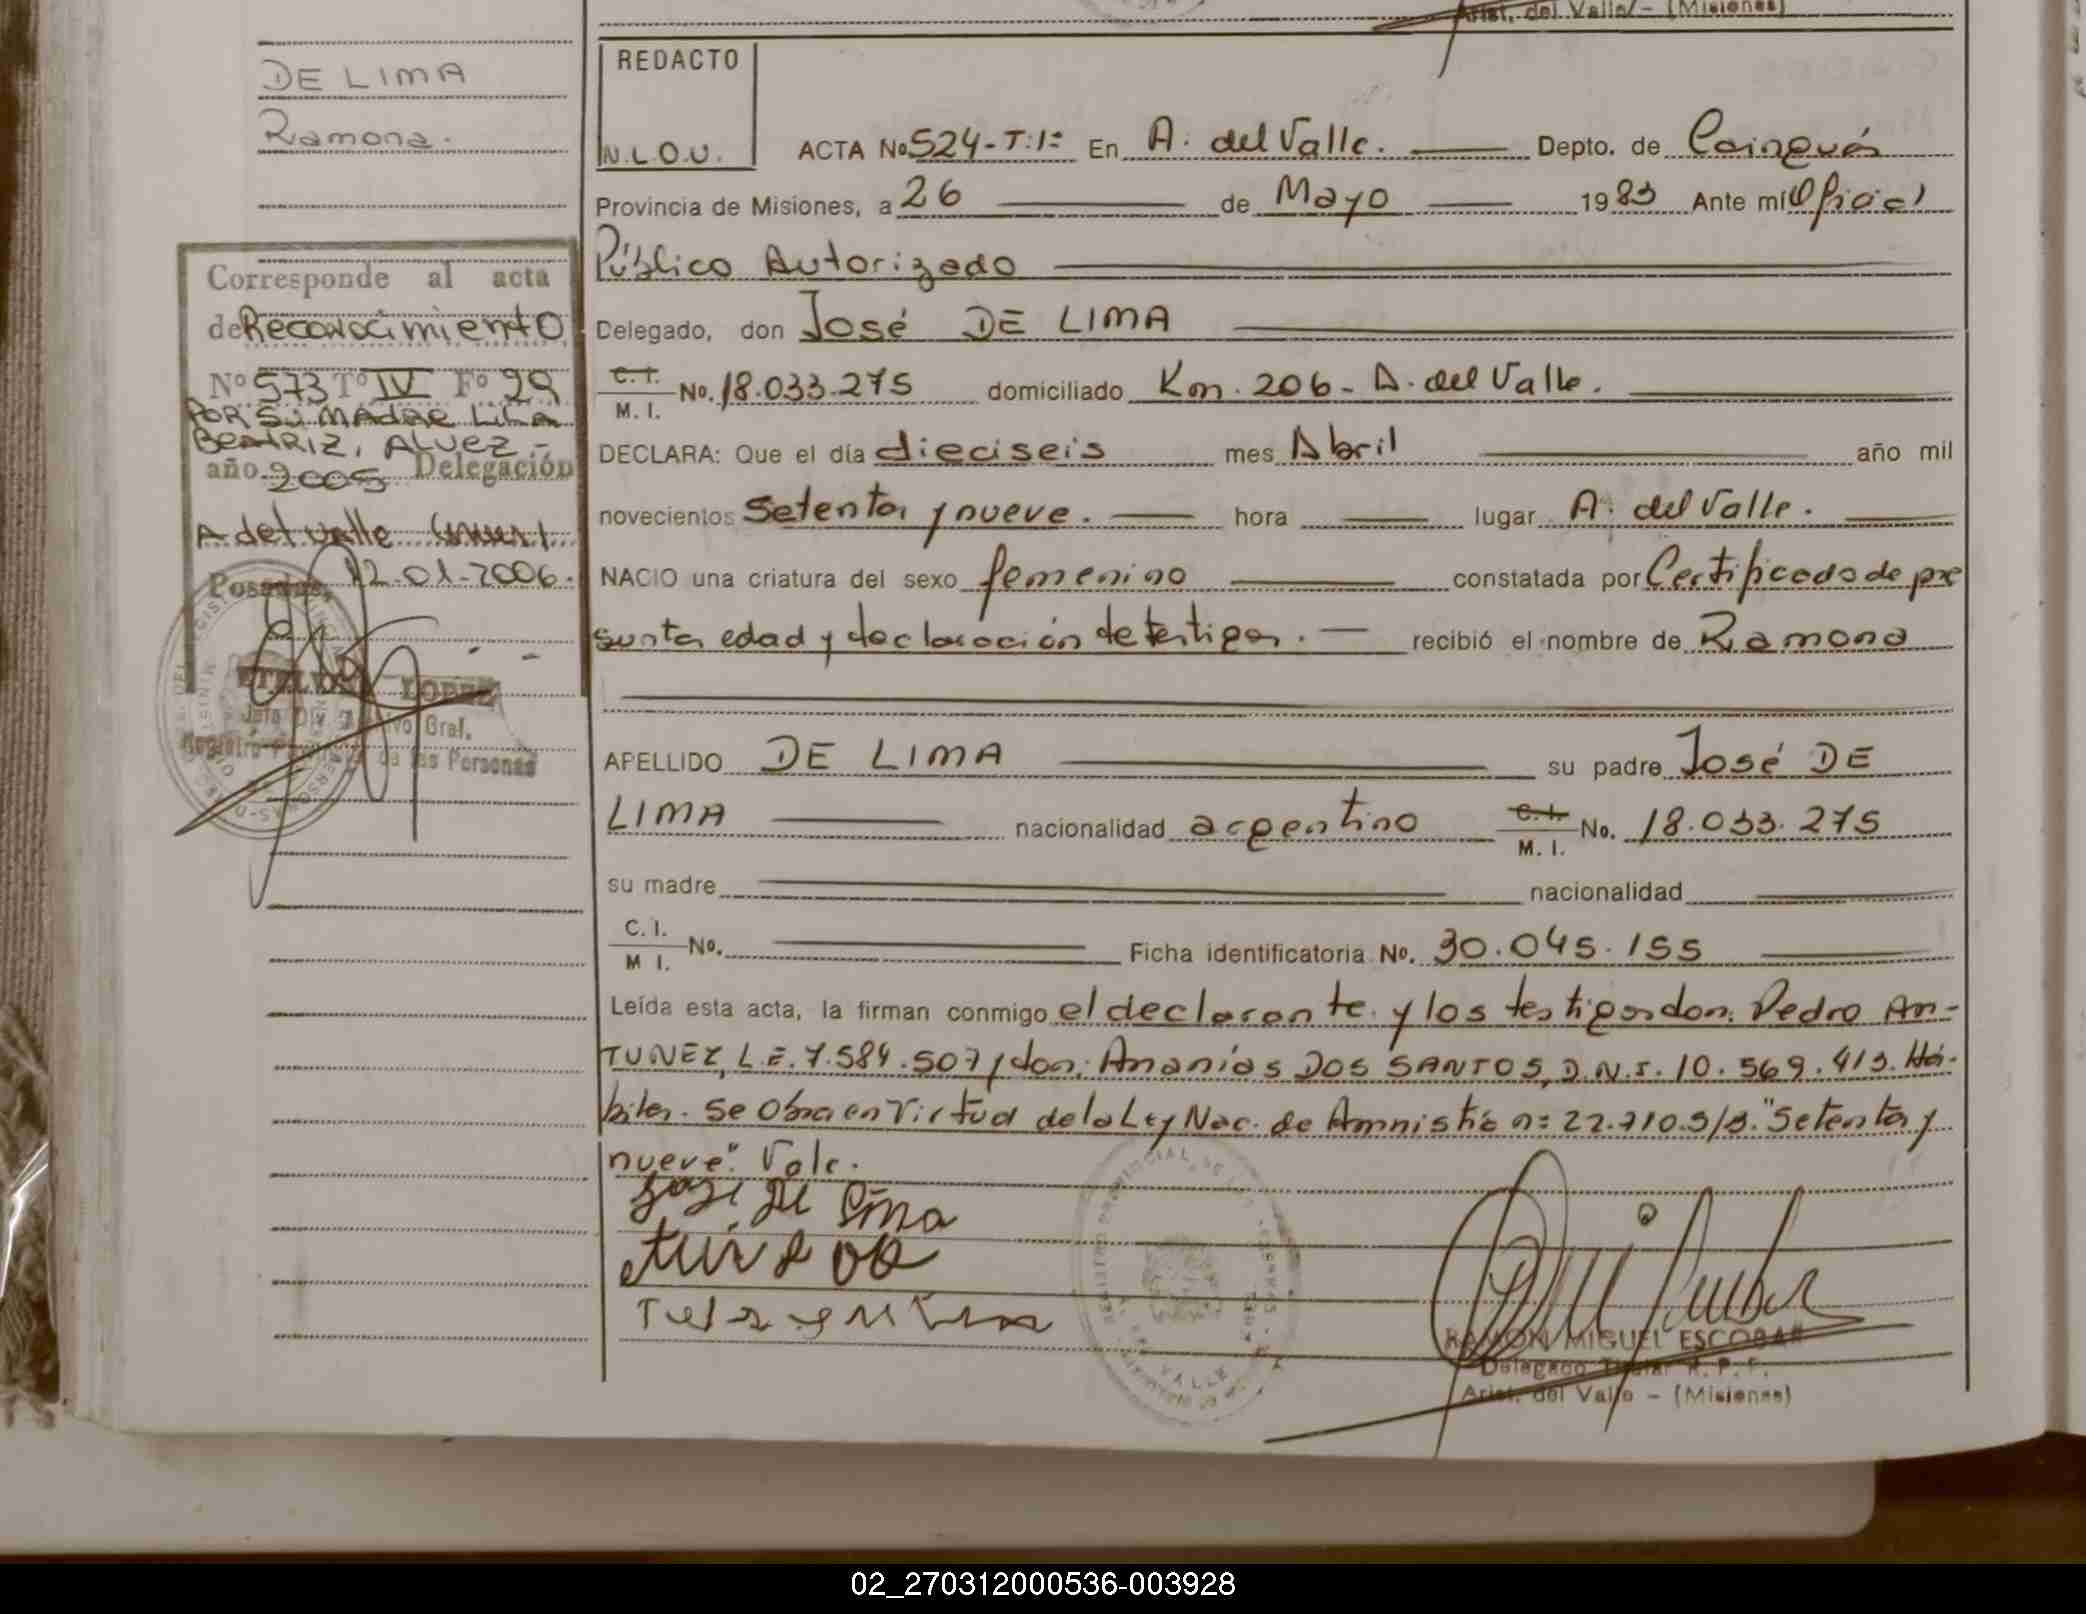 Arist. del Valle - (Misiones)
DE LIMA
Ramona.
REDACTO
N.L.O.U.
ACTA No 524-T:1º En A. del Valle. Depto. de Cainguás
Provincia de Misiones, a 26 de Mayo 1983 Ante mí Oficial
Público Autorizado
Delegado, don José DE LIMA
C.I. M.I. No. 18.033.275 domiciliado Km. 206 - A. del Valle.
DECLARA: Que el día dieciseis mes Abril año mil
novecientos Setenta y nueve. hora lugar A. del Valle.
NACIO una criatura del sexo femenino constatada por Certificado de pre
sunta edad y declaración de testigos. recibió el nombre de Ramona
APELLIDO DE LIMA su padre José DE
LIMA nacionalidad argentino C.I. M.I. No. 18.033.275
su madre nacionalidad
C.I. M I. No. Ficha identificatoria No. 30.045.155
Leída esta acta, la firman conmigo el declarante y los testigos don: Pedro AN-
TUNEZ, L.E. 7.584.507 y don: Ananías DOS SANTOS, D.N.I. 10.569.413. Há-
biles. Se Obra en Virtud de la Ley Nac. de Amnistía n= 22.710.S/3. "Setenta y
nueve". Vale.
José de Lima
RAMON MIGUEL ESCOBAR
Delegado Titular R. P. P.
Arist. del Valle - (Misiones)
Corresponde al acta
de Reconocimiento
Nº 573 Tº IV Fº 29
POR SU MADRE LILA
BEATRIZ, ALVEZ -
año 2005 Delegación
A del valle
Posadas, 12-01-2006.
LOPEZ
Gral.
de las Personas
02_270312000536-003928